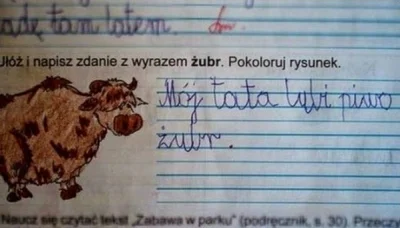 adę tam latem.
Ułóż i napisz zdanie z wyrazem żubr. Pokoloruj rysunek.
Mój tata lubi piwo
żubr.
Naucz się czytać tekst „Zabawa w parku” (podręcznik, s. 30). Przeczy